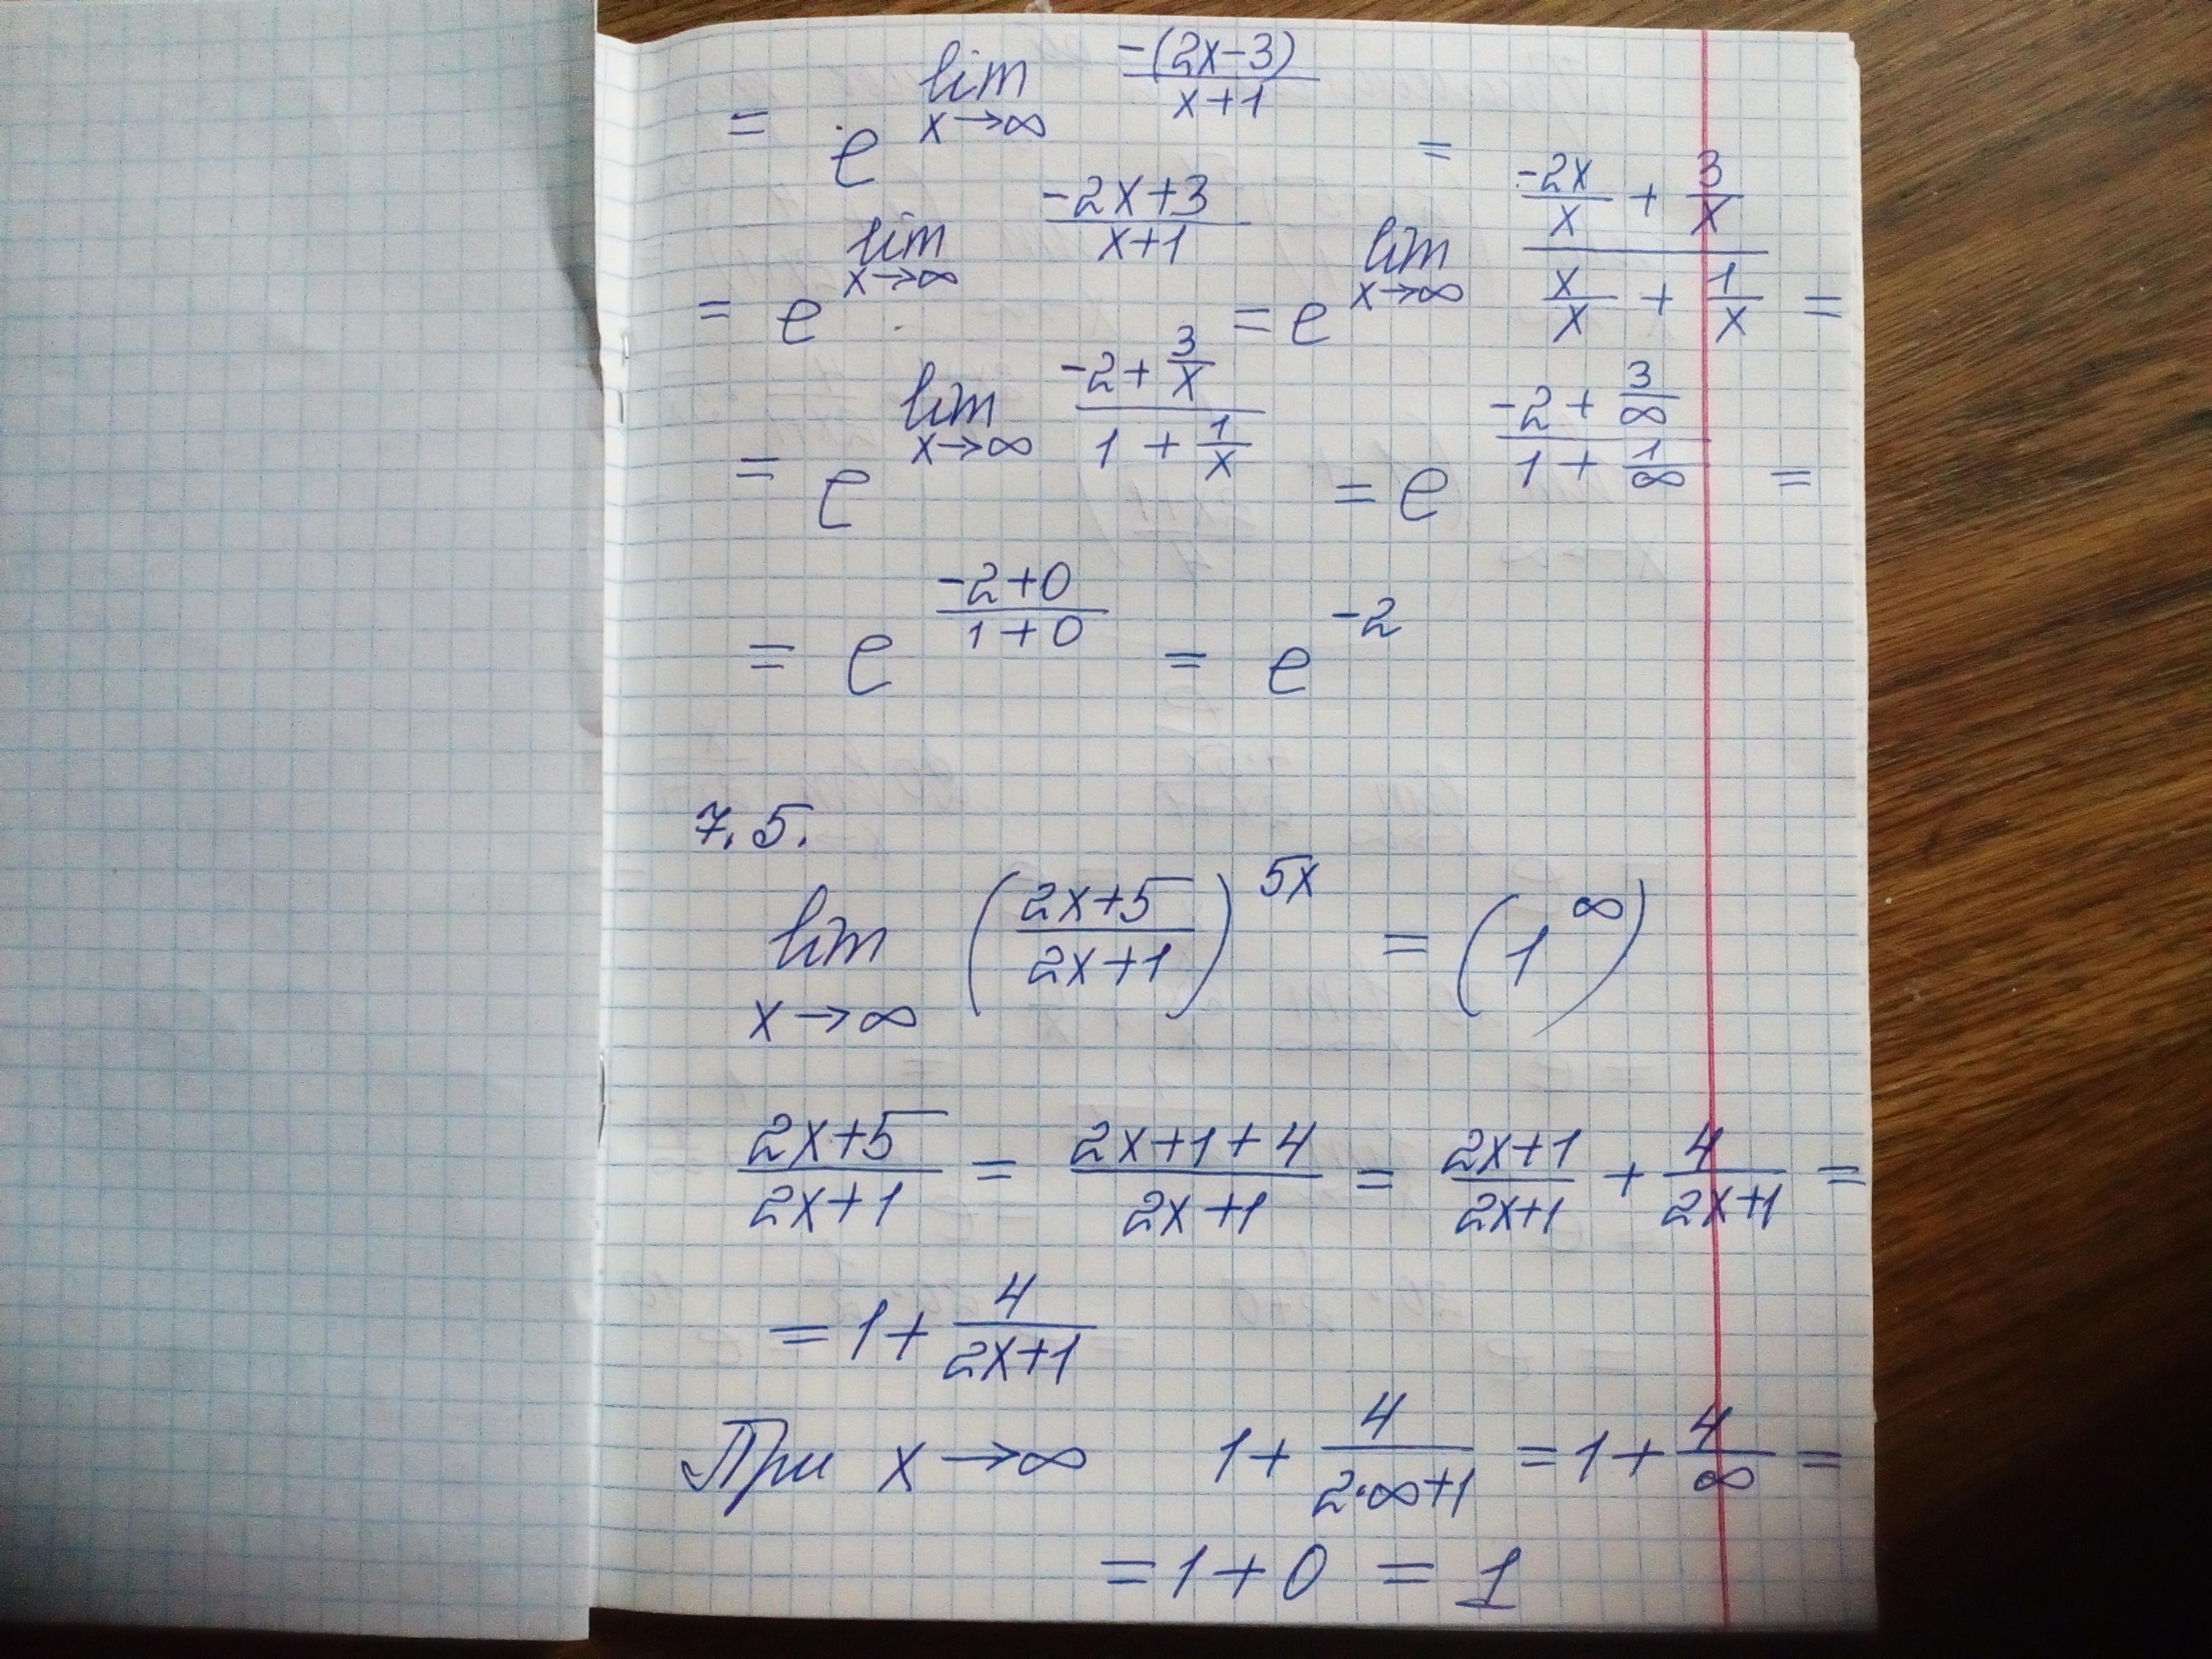 = e^{lim_{x→∞} \frac{-(2x-3)}{x+1}} =
= e^{lim_{x→∞} \frac{-2x+3}{x+1}} = e^{lim_{x→∞} \frac{\frac{-2x}{x} + \frac{3}{x}}{\frac{x}{x} + \frac{1}{x}}} =
= e^{lim_{x→∞} \frac{-2 + \frac{3}{x}}{1 + \frac{1}{x}}} = e^{\frac{-2 + \frac{3}{∞}}{1 + \frac{1}{∞}}} =
= e^{\frac{-2+0}{1+0}} = e^{-2}
7.5.
lim_{x→∞} (\frac{2x+5}{2x+1})^{5x} = (1^∞)
\frac{2x+5}{2x+1} = \frac{2x+1+4}{2x+1} = \frac{2x+1}{2x+1} + \frac{4}{2x+1} =
= 1 + \frac{4}{2x+1}
При x→∞ 1 + \frac{4}{2·∞+1} = 1 + \frac{4}{∞} =
= 1 + 0 = 1